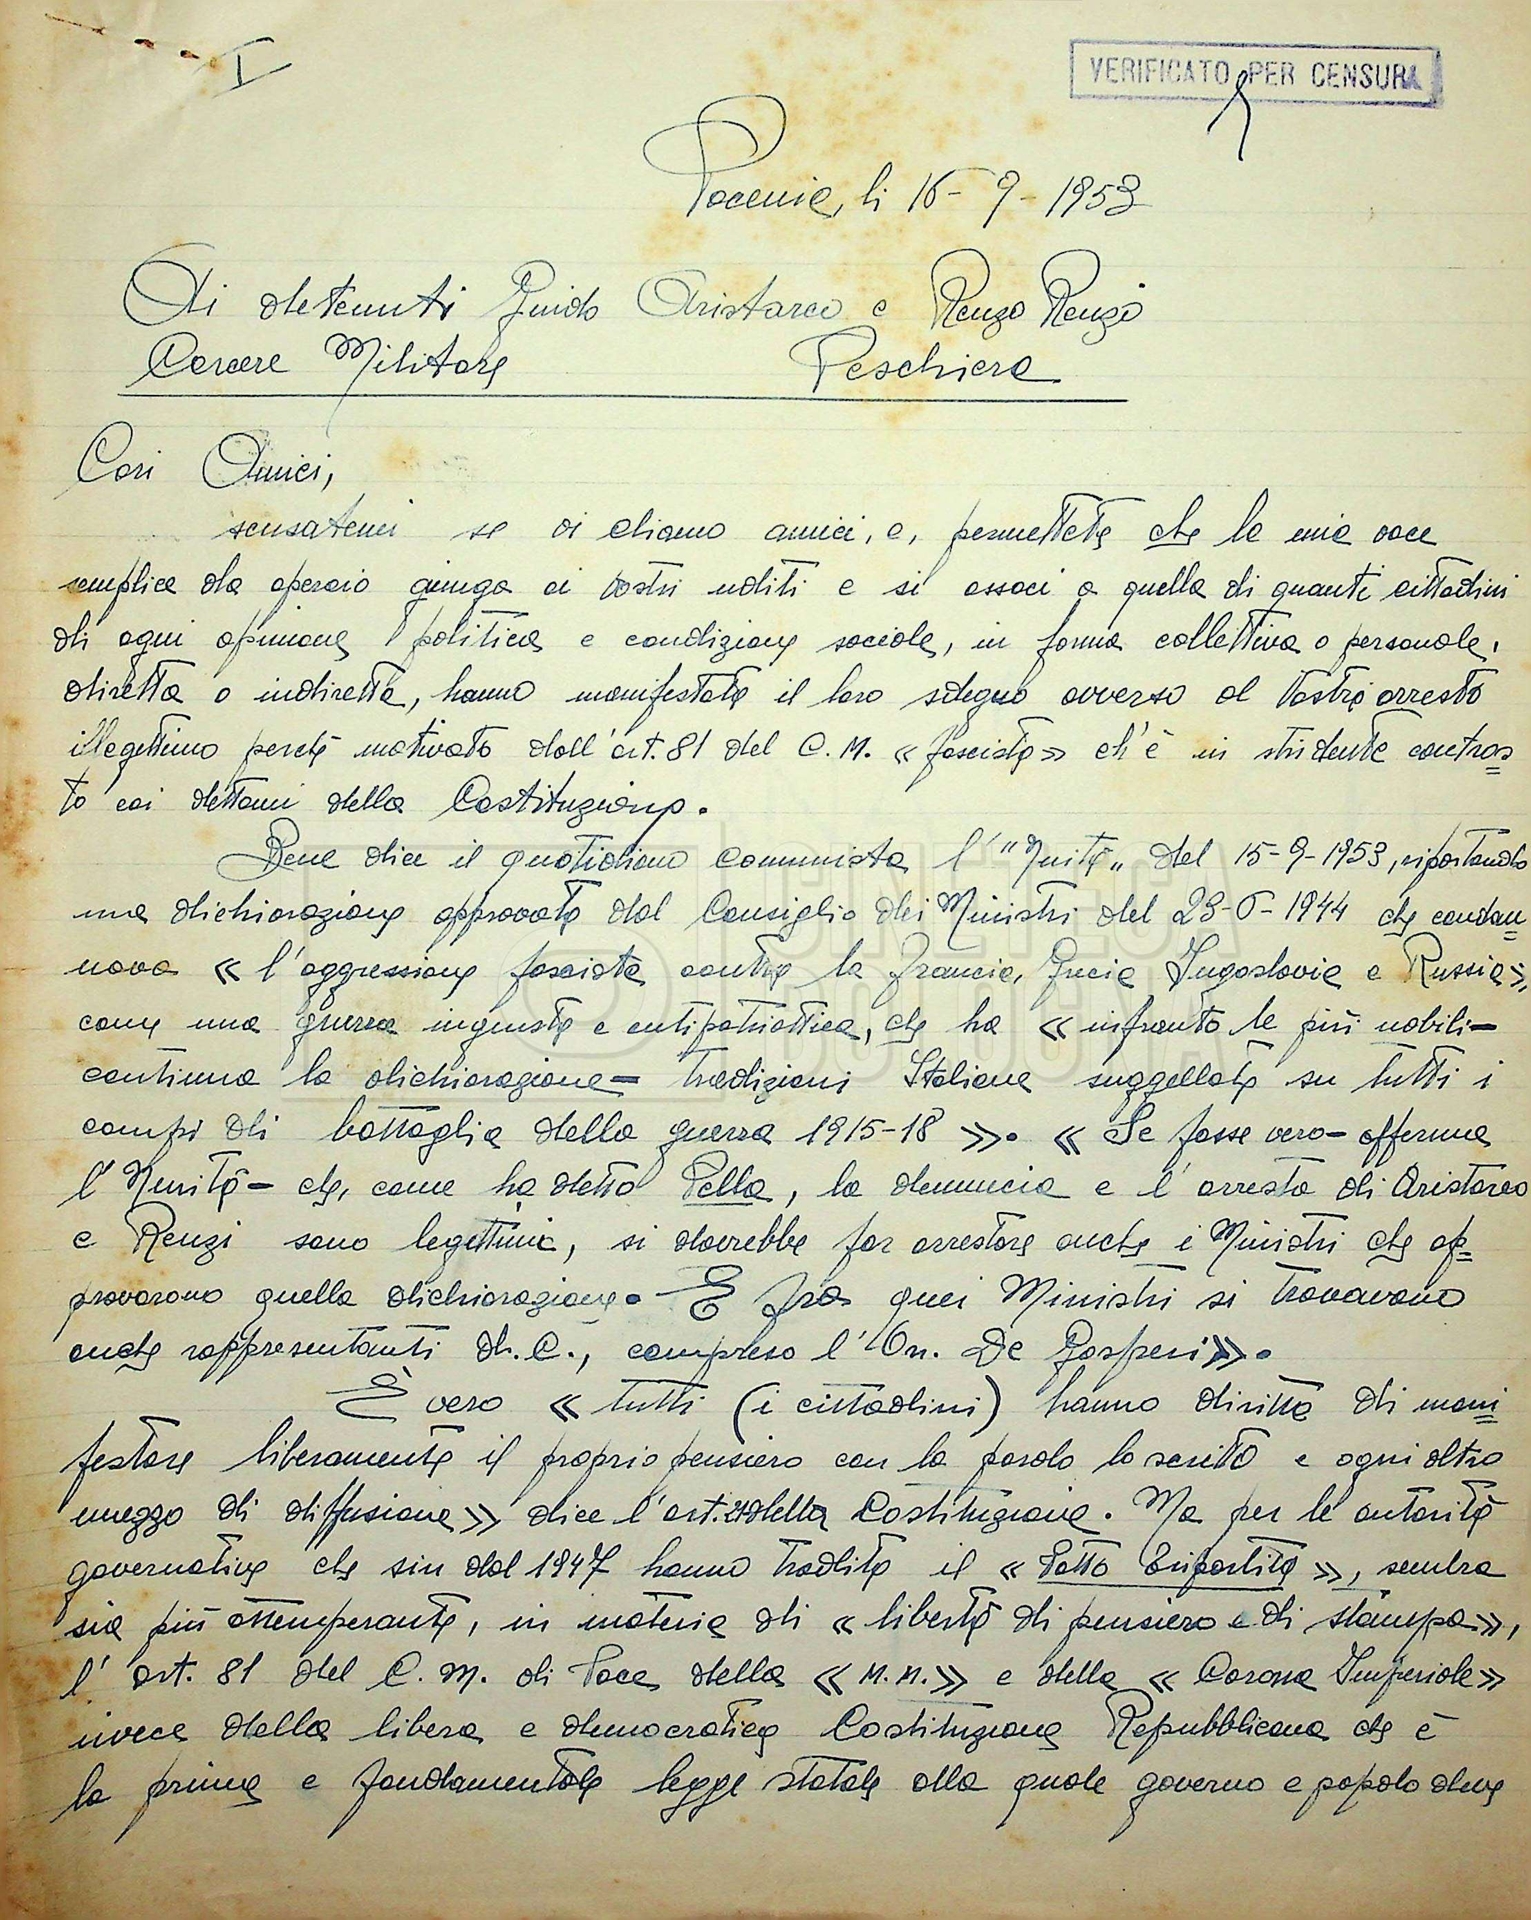 I
VERIFICATO PER CENSURA
Pocenia, li 16-9-1953
Ai detenuti Guido Aristarco e Renzo Renzi
Carcere Militare Peschiera
Cari Amici,
scusatemi se vi chiamo amici, e, permettete che la mia voce
semplice da operaio giunga ai vostri uditi e si associ a quella di quanti cittadini
di ogni opinione politica e condizione sociale, in forma collettiva o personale,
diretta o indiretta, hanno manifestato il loro sdegno avverso al Vostro arresto
illegittimo perchè motivato dall'art. 81 del C. M. « fascista » ch'è in stridente contras
to coi dettami della Costituzione.
Bene dice il quotidiano comunista l'"Unità" del 15-9-1953, riportando
una dichiarazione approvata dal Consiglio dei Ministri del 23-6-1944 che condan
nava « l'aggressione fascista contro la Francia, Grecia Jugoslavia e Russia »,
come una guerra ingiusta e antipatriottica, che ha « infranto le più nobili-
continua la dichiarazione- tradizioni Italiane suggellate su tutti i
campi di battaglia della guerra 1915-18 ». « Se fosse vero- afferma
l'Unità- che, come ha detto Pella, la denuncia e l'arresto di Aristarco
e Renzi sono legittimi, si dovrebbe far arrestare anche i Ministri che ap
provarono quella dichiarazione. E fra quei Ministri si trovavano
anche rappresentanti d.C., compreso l'On. De Gasperi ».
È vero « tutti (i cittadini) hanno diritto di mani
festare liberamente il proprio pensiero con la parola lo scritto e ogni altro
mezzo di diffusione » dice l'art. 21 della Costituzione. Ma per le autorità
governative che sin dal 1947 hanno tradito il « Patto Tripartito », sembra
sia più ottemperante, in materia di « libertà di pensiero e di stampa »,
l'art. 81 del C. M. di Pace della « M.M. » e della « Corona Imperiale »
invece della libera e democratica Costituzione Repubblicana che è
la prima e fondamentale legge statale alla quale governo e popolo deve
CINETECA
BOLOGNA